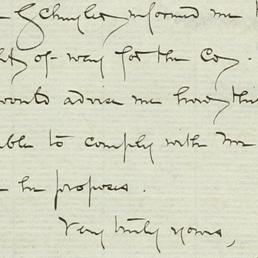 Schuyler informed me
of way for the Co.
would advise me how this
able to comply with Mr
he proposes.
Very truly yours,